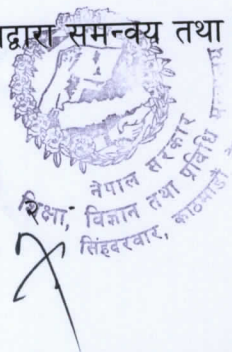 द्वारा समन्वय तथा
नेपाल सरकार
शिक्षा, विज्ञान तथा प्रविधि
सिंहदरवार, काठमाडौं